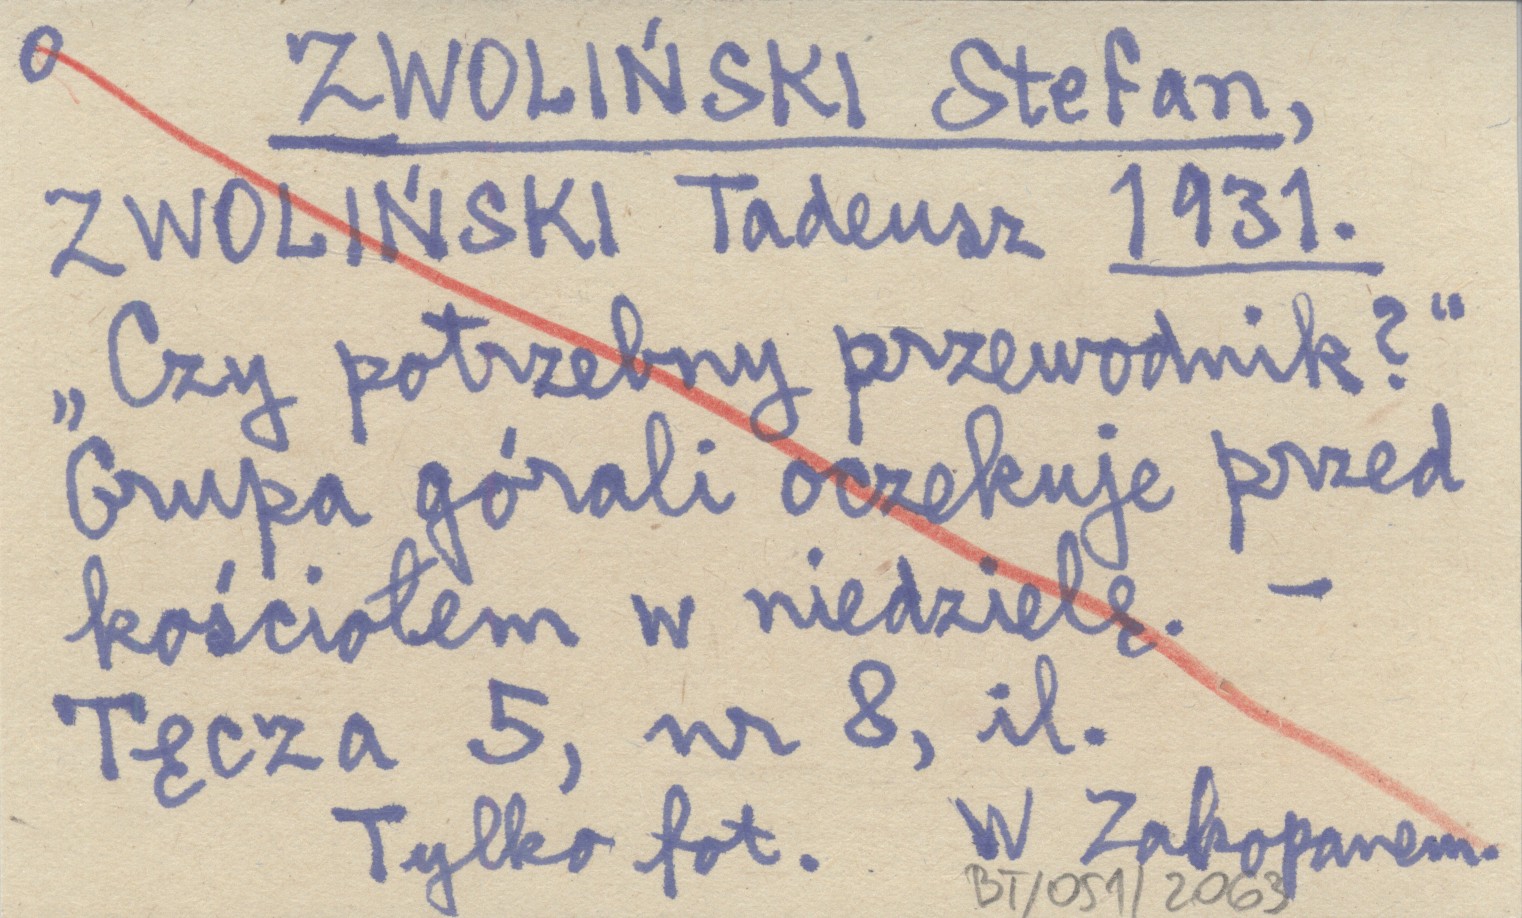 O ZWOLIŃSKI Stefan,
ZWOLIŃSKI Tadeusz 1931.
„Czy potrzebny przewodnik?“
Grupa górali oczekuje przed
kościołem w niedzielę. –
Tęcza 5, nr 8, il.
Tylko fot. W Zakopanem.
BT/051/2063